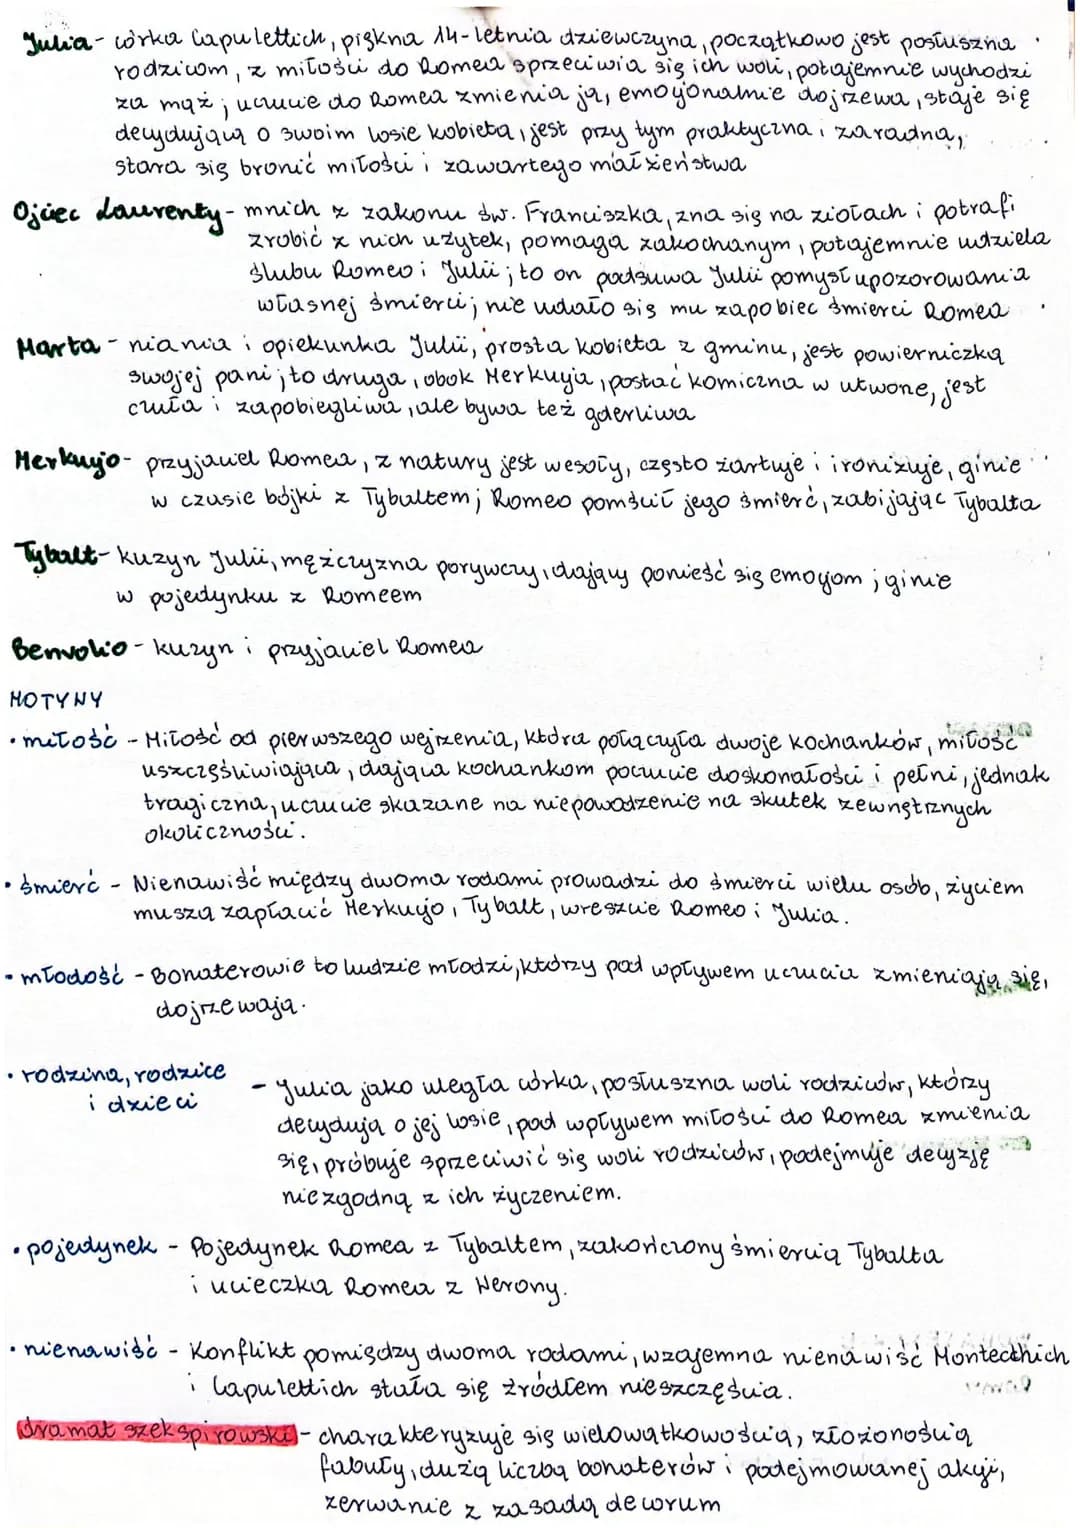 Julia - córka Capulettich, piękna 14-letnia dziewczyna, początkowo jest posłuszna
rodzicom, z miłości do Romea sprzeciwia się ich woli, potajemnie wychodzi
za mąż; uczucie do Romea zmienia ją, emocjonalnie dojrzewa, staje się
decydującą o swoim losie kobietą, jest przy tym praktyczna i zaradna,
stara się bronić miłości i zawartego małżeństwa
Ojciec Laurenty - mnich z zakonu św. Franciszka, zna się na ziołach i potrafi
zrobić z nich użytek, pomaga zakochanym, potajemnie udziela
ślubu Romeo i Julii; to on podsuwa Julii pomysł upozorowania
własnej śmierci; nie udało się mu zapobiec śmierci Romea
Marta - niania i opiekunka Julii, prosta kobieta z gminu, jest powierniczką
swojej pani; to druga, obok Merkucja, postać komiczna w utworze, jest
czuła i zapobiegliwa, ale bywa też gderliwa
Merkucjo - przyjaciel Romea, z natury jest wesoły, często żartuje i ironizuje, ginie
w czasie bójki z Tybaltem; Romeo pomścił jego śmierć, zabijając Tybalta
Tybalt - kuzyn Julii, mężczyzna porywczy, dający ponieść się emocjom; ginie
w pojedynku z Romeem
Benvolio - kuzyn i przyjaciel Romea
MOTYWY
• miłość - Miłość od pierwszego wejrzenia, która połączyła dwoje kochanków, miłość
uszczęśliwiająca, dająca kochankom poczucie doskonałości i pełni, jednak
tragiczna, uczucie skazane na niepowodzenie na skutek zewnętrznych
okoliczności.
• śmierć - Nienawiść między dwoma rodami prowadzi do śmierci wielu osób, życiem
muszą zapłacić Merkucjo, Tybalt, wreszcie Romeo i Julia.
• młodość - Bohaterowie to ludzie młodzi, którzy pod wpływem uczucia zmieniają się,
dojrzewają.
• rodzina, rodzice
i dzieci
- Julia jako uległa córka, posłuszna woli rodziców, którzy
decydują o jej losie, pod wpływem miłości do Romea zmienia
się, próbuje sprzeciwić się woli rodziców, podejmuje decyzję
niezgodną z ich życzeniem.
• pojedynek - Pojedynek Romea z Tybaltem, zakończony śmiercią Tybalta
i ucieczką Romea z Werony.
• nienawiść - Konflikt pomiędzy dwoma rodami, wzajemna nienawiść Montecchich
i Capulettich stała się źródłem nieszczęścia.
dramat szekspirowski - charakteryzuje się wielowątkowością, złożonością
fabuły, dużą liczbą bohaterów i podejmowanej akcji,
zerwanie z zasadą decorum